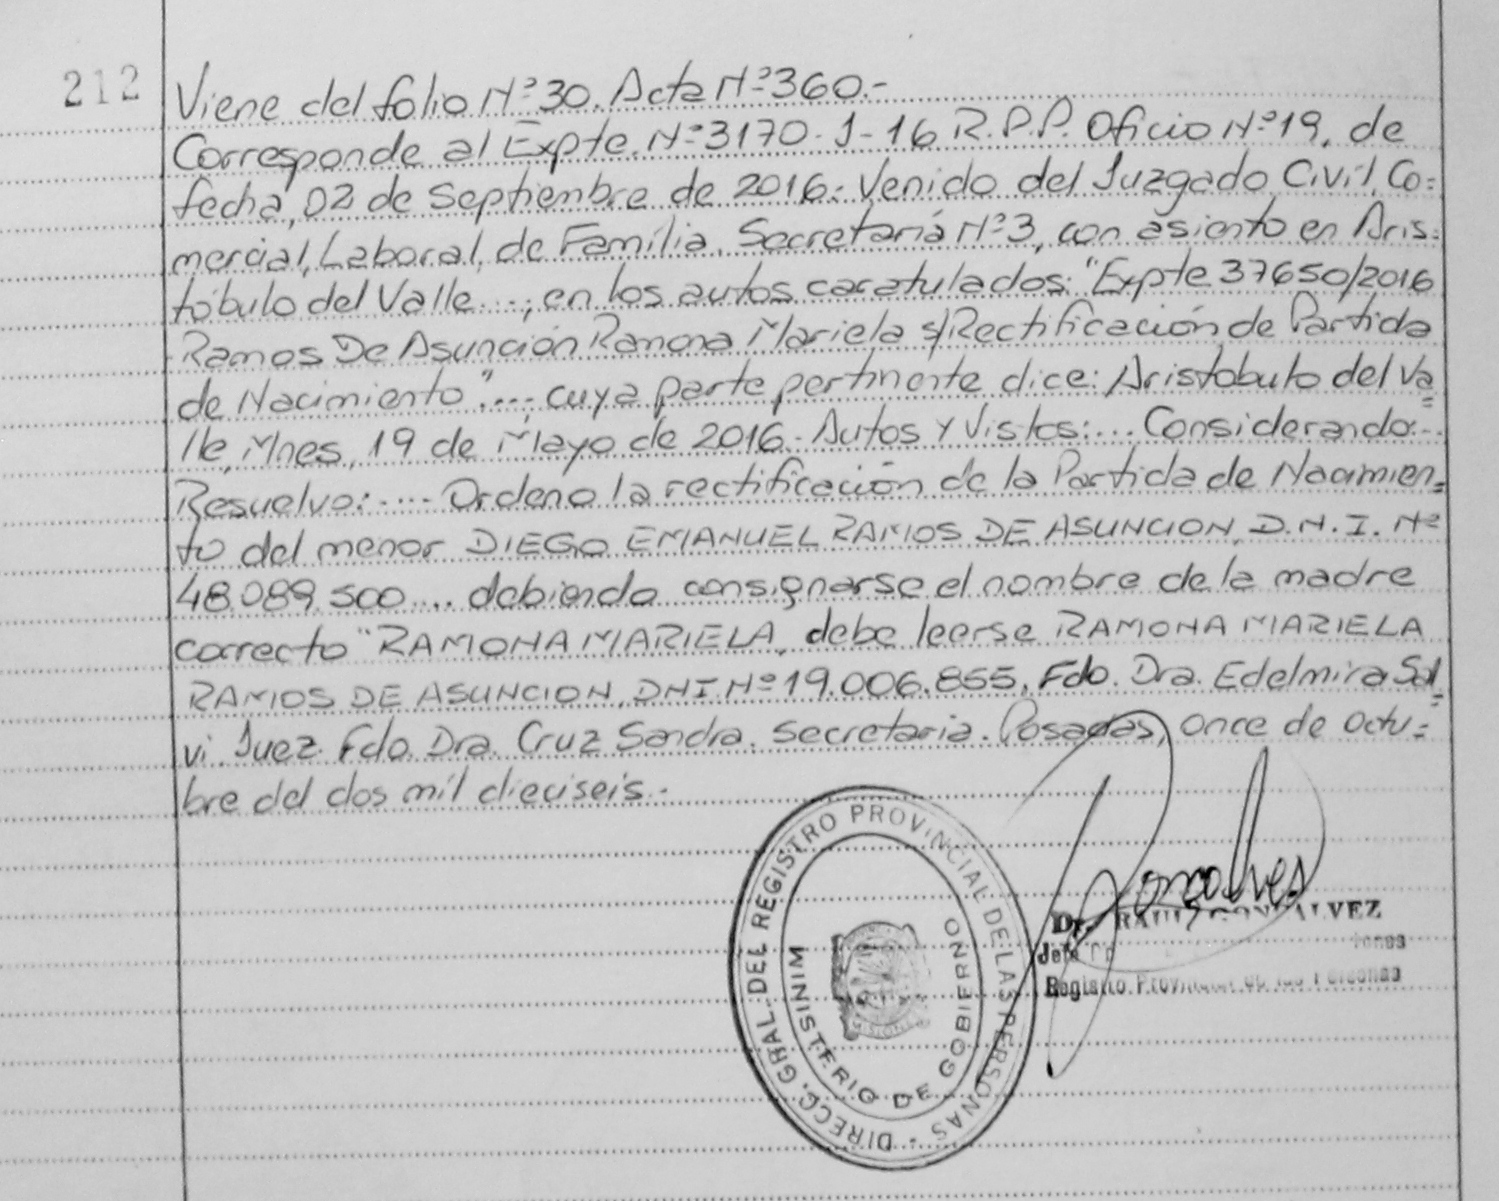 212
Viene del folio Nº 30. Acta Nº 360.-
Corresponde al Expte. Nº 3170-J-16 R.P.P. Oficio Nº 19, de
fecha, 02 de Septiembre de 2016. Venido del Juzgado Civil, Co=
mercial, Laboral, de Familia. Secretaría Nº 3, con asiento en Aris=
tóbulo del Valle...; en los autos caratulados: "Expte 37650/2016
Ramos De Asunción Ramona Mariela s/Rectificación de Partida
de Nacimiento"...; cuya parte pertinente dice: Aristobulo del Va=
lle, Mnes, 19 de Mayo de 2016. Autos y Vistos:... Considerando:..
Resuelvo:.... Ordeno la rectificación de la Partida de Nacimien=
to del menor DIEGO EMANUEL RAMOS DE ASUNCION, D.N.I. Nº
48.089.500.... debiendo consignarse el nombre de la madre
correcto "RAMONA MARIELA, debe leerse RAMONA MARIELA
RAMOS DE ASUNCION, DNI Nº 19.006.855. Fdo. Dra. Edelmira Sal=
vi. Juez. Fdo. Dra. Cruz Sandra. Secretaria. Posadas, once de octu=
bre del dos mil dieciseis.-
DIRECC. GRAL. DEL REGISTRO PROVINCIAL DE LAS PERSONAS
MINISTERIO DE GOBIERNO
Gonçalves
Dr. RAUL GONCALVEZ
Jefe
Registro Provincial de las Personas